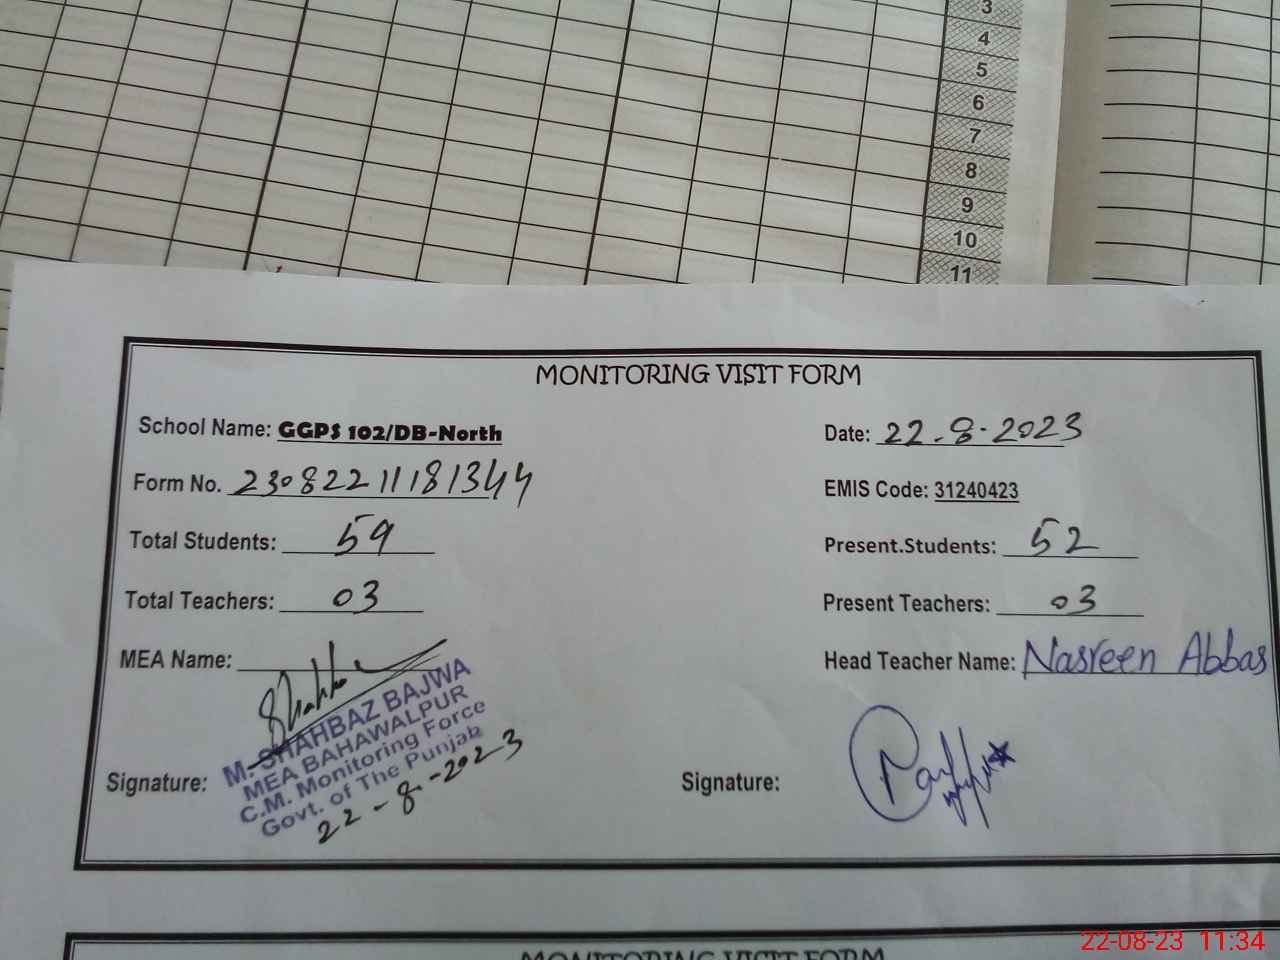 3
4
5
6
7
8
9
10
11
MONITORING VISIT FORM
School Name: GGPS 102/DB-North
Date: 22-8-2023
Form No. 23082211181344
EMIS Code: 31240423
Total Students: 59
Present.Students: 52
Total Teachers: 03
Present Teachers: 03
MEA Name:
Head Teacher Name: Nasreen Abbas
M. SHAHBAZ BAJWA
MEA BAHAWALPUR
C.M. Monitoring Force
Govt. of The Punjab
22-8-2023
Signature:
Signature:
MONITORING VISIT FORM
22-08-23 11:34